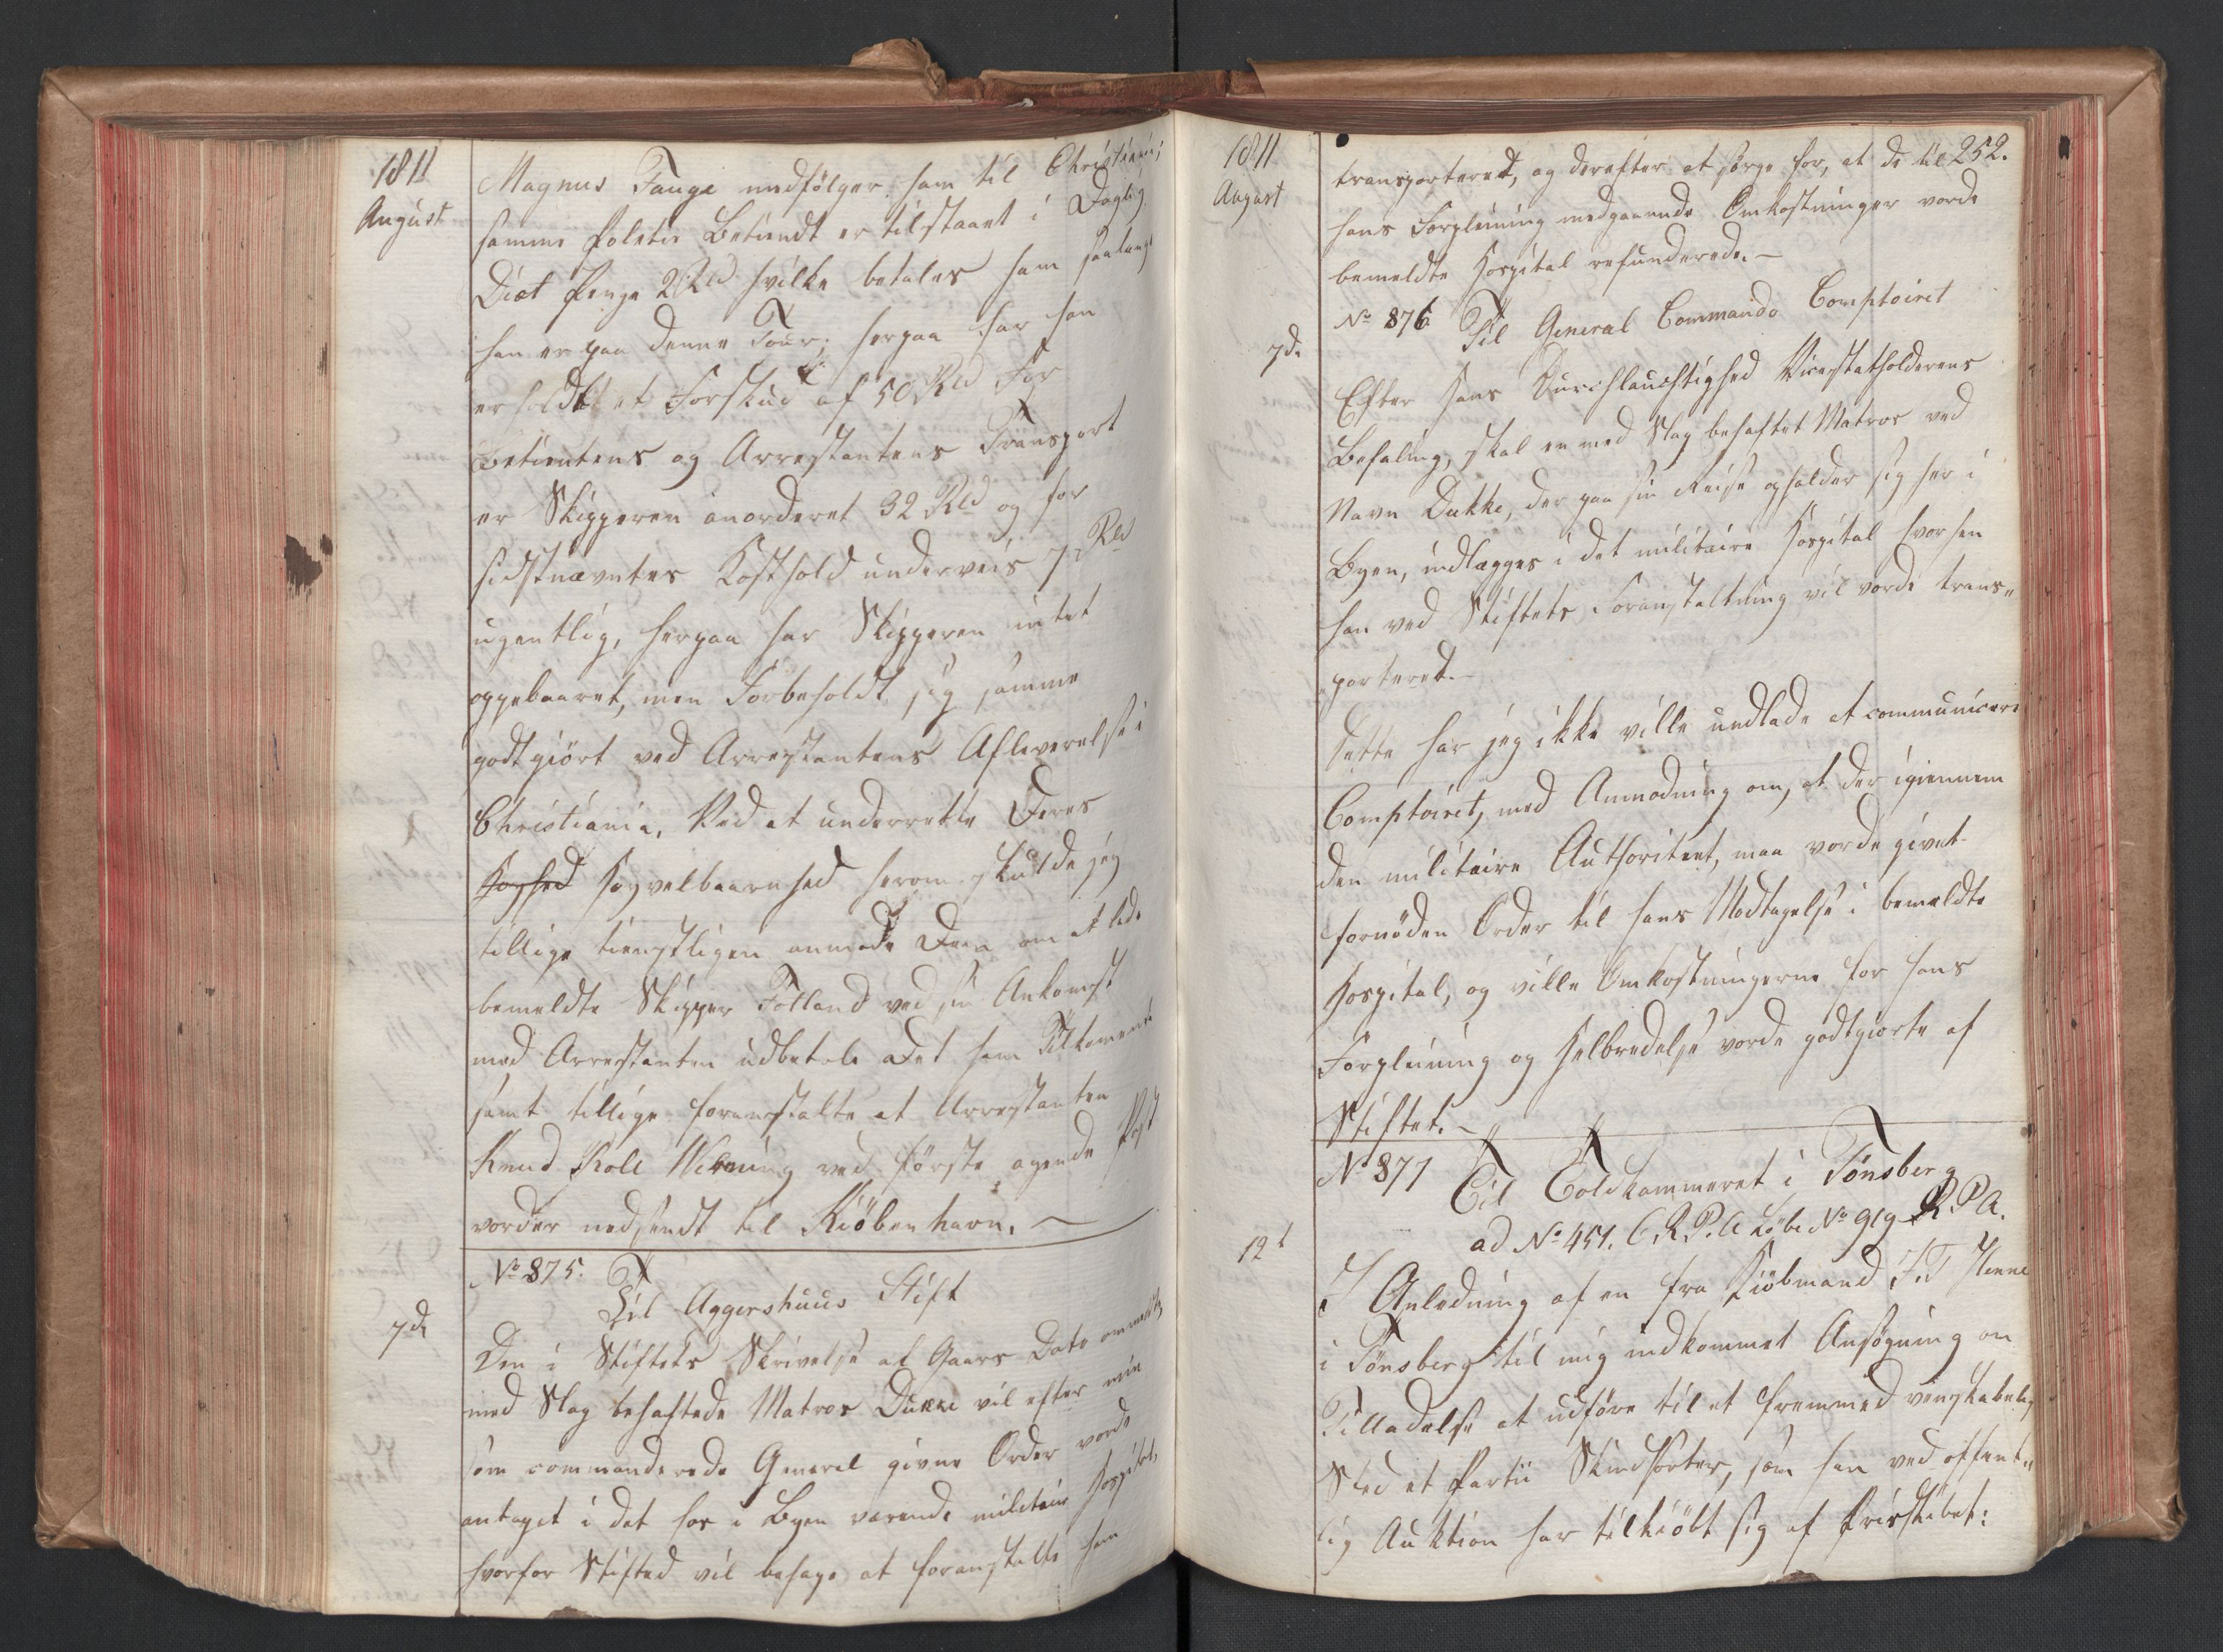 1811
August
Magnus Tange medfölger som til Christiani,
samme Politie Betiendt er tilstaaet i Daglig
Diæt Penge 2 Rd hvilke betales ham saalænge
han er paa denne Tour; herpaa har han
erholdt et Forskud af 50 Rd For
Betientens og Arrestantens Transport
er Skipperen anorderet 32 Rd og for
sidstnævntes Kosthold underveis 7 Rd
ugentlig, herpaa har Skipperen intet
oppebaaret, men Forbeholdt sig samme
godtgiört ved Arrestantens Afleverelse i
Christiania. Ved at underrette Deres
Høyhed Høyvelbaarenhed herom skulde jeg
tillige tienstligen anmode Dem om at lade
bemeldte Skipper Tolland ved sin Ankomst
med Arrestanten udbetale Det ham Tilkomende
samt tillige foranstalte at Arrestanten
Knud Role Wibring ved förste agende Post
vorder nedsendt til Kiöbenhavn.
No 875.
Til Aggershuus Stift
7de
Den i Stiftets Skrivelse af Gaars Dato ommeldte
med Slag behæftede Matros Dukke vil efter min
som commanderede General givne Order vorde
antaget i det her i Byen værende militaire Hospital,
hvorfor Stiftet vil behage at foranstalte ham
1811
August
252.
transporteret, og derefter at sørge for, at de til
hans Forpleining medgaaende Omkostninger vorde
bemeldte Hospital refunderede.
No 876
Til General Commando Comptoiret
7de
Efter Hans Durchlauchtighed Vicestatholderens
Befaling, skal en med Slag behæftet Matros ved
Navn Dukke, der paa sin Reise opholder sig her i
Byen, indlægges i det militaire Hospital hvorhen
han ved Stiftets Foranstaltning vil vorde trans„
porteret.
Dette har jeg ikke ville undlade at communicere
Comptoiret, med Anmodning om, at der igiennem
den militaire Authoritet, maa vorde givet
fornöden Order til hans Modtagelse i bemeldte
Hospital, og ville Omkostningerne for hans
Forpleining og Helbredelse vorde godtgiorte af
Stiftet.
No 877
Til Toldkammeret i Tönsberg
ad No 451. C.R.P.A. Löbe No 919 R.P.A.
12t
I Anledning af en fra Kiöbmand F.T
i Tönsberg til mig indkommet Ansögning om
Tilladelse at udföre til et fremmed venskabelig
Sted et Partie Skindsorter, som han ved offent„
lig Auktion har tilkiöbt sig af Priisskibet: